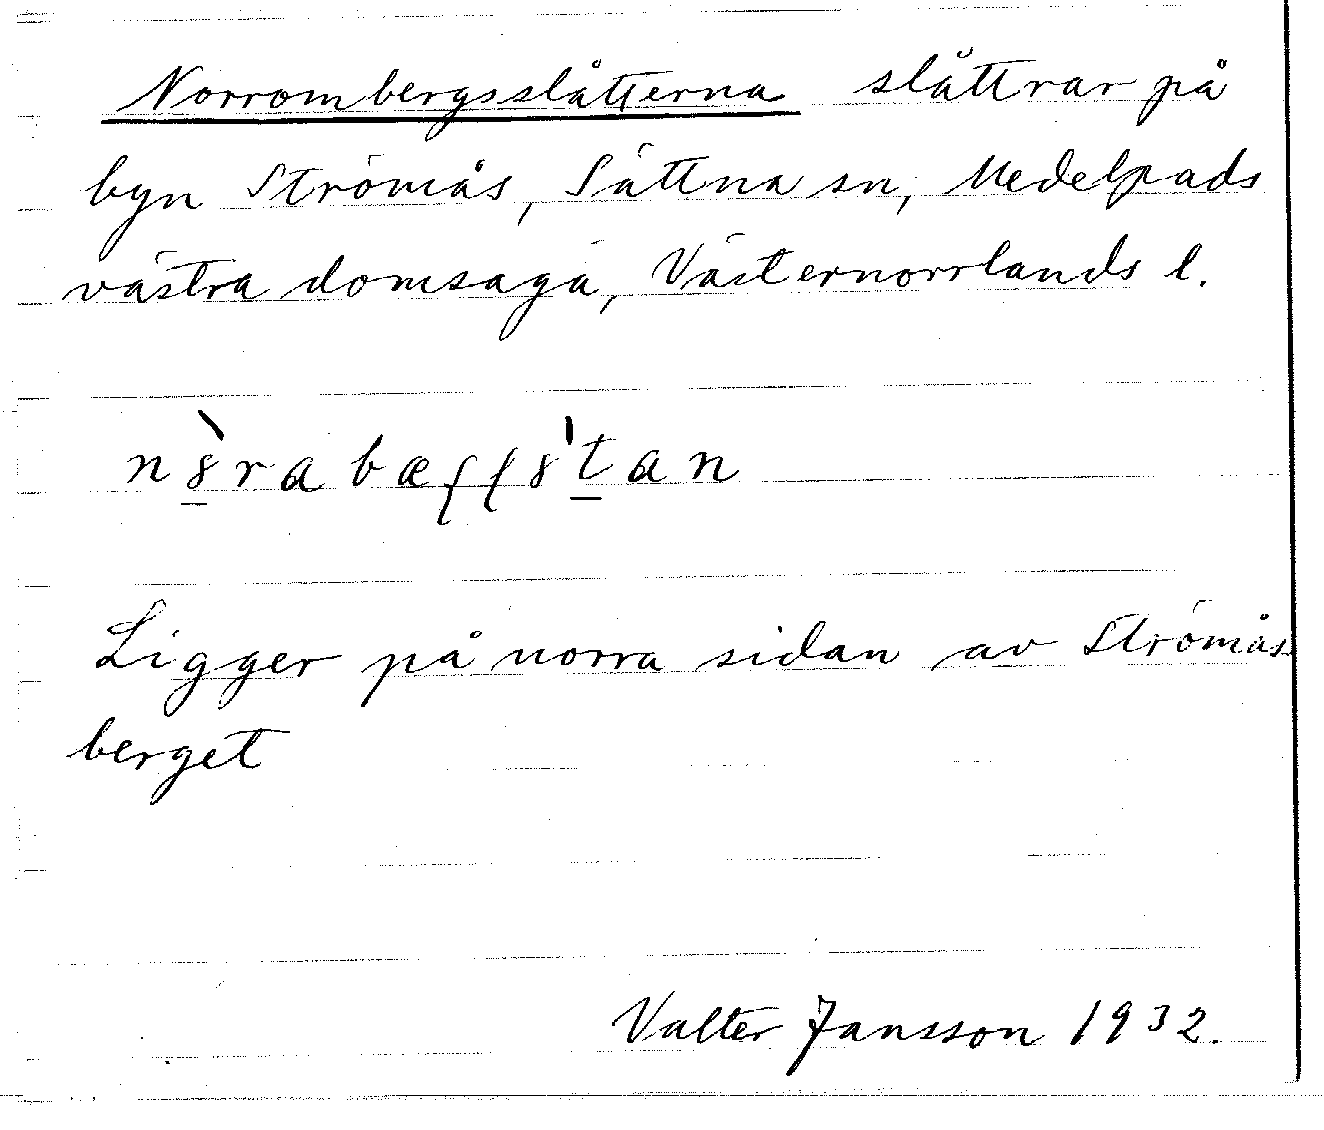 Norrombergsslåtterna slåttrar på
byn Strömås, Sättna sn, Medelpads
västra domsaga, Västernorrlands l.
Ligger på norra sidan av Strömås
berget
Valter Jansson 1932.